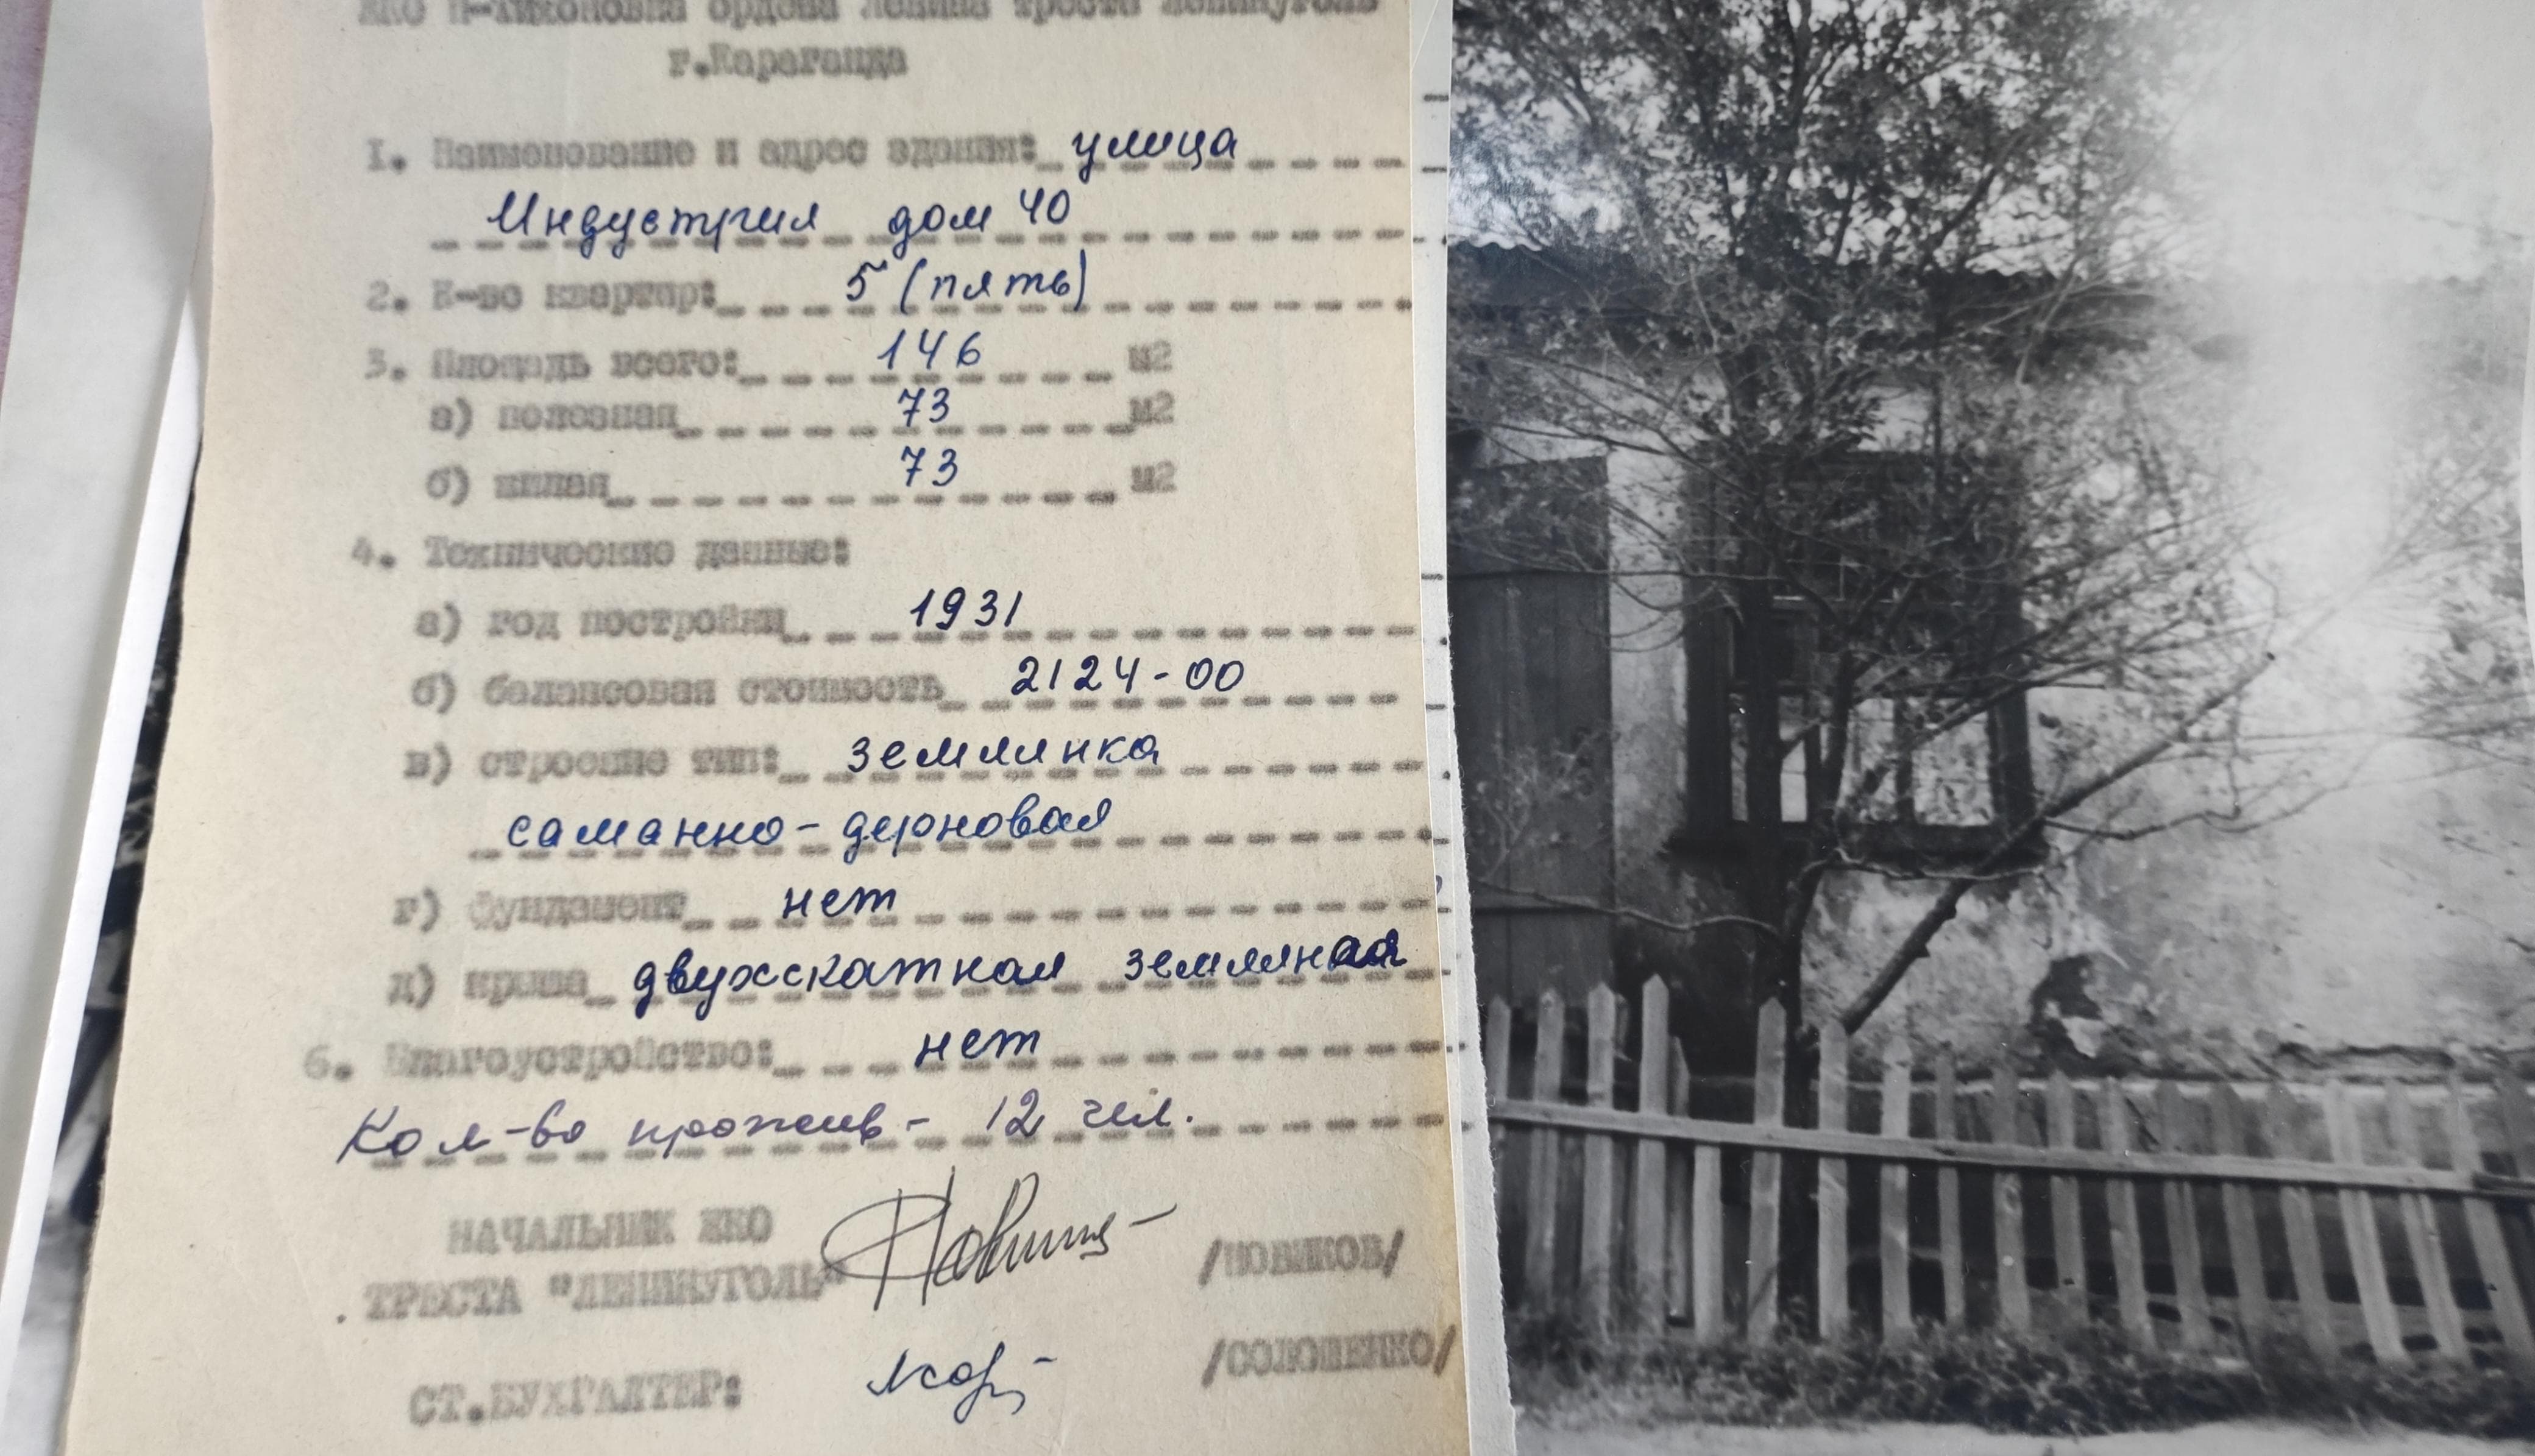 ЖКО Н-Тихоновка ордена Ленина треста Ленинуголь
г.Караганда
1. Наименование и адрес здания: улица
Индустрия дом 40
2. К-во квартир: 5 (пять)
3. Площадь всего: 146 м2
а) полезная 73 м2
б) жилая 73 м2
4. Технические данные:
а) год постройки 1931
б) балансовая стоимость 2124-00
в) строение тип: землянка
саманно-дерновая
г) фундамент нет
д) крыша двухскатная земляная
6. Благоустройство: нет
Кол-во прожив- 12 чел.
НАЧАЛЬНИК ЖКО
ТРЕСТА "ЛЕНИНУГОЛЬ" /НОВИКОВ/
СТ.БУХГАЛТЕР: /СОЛОШЕНКО/